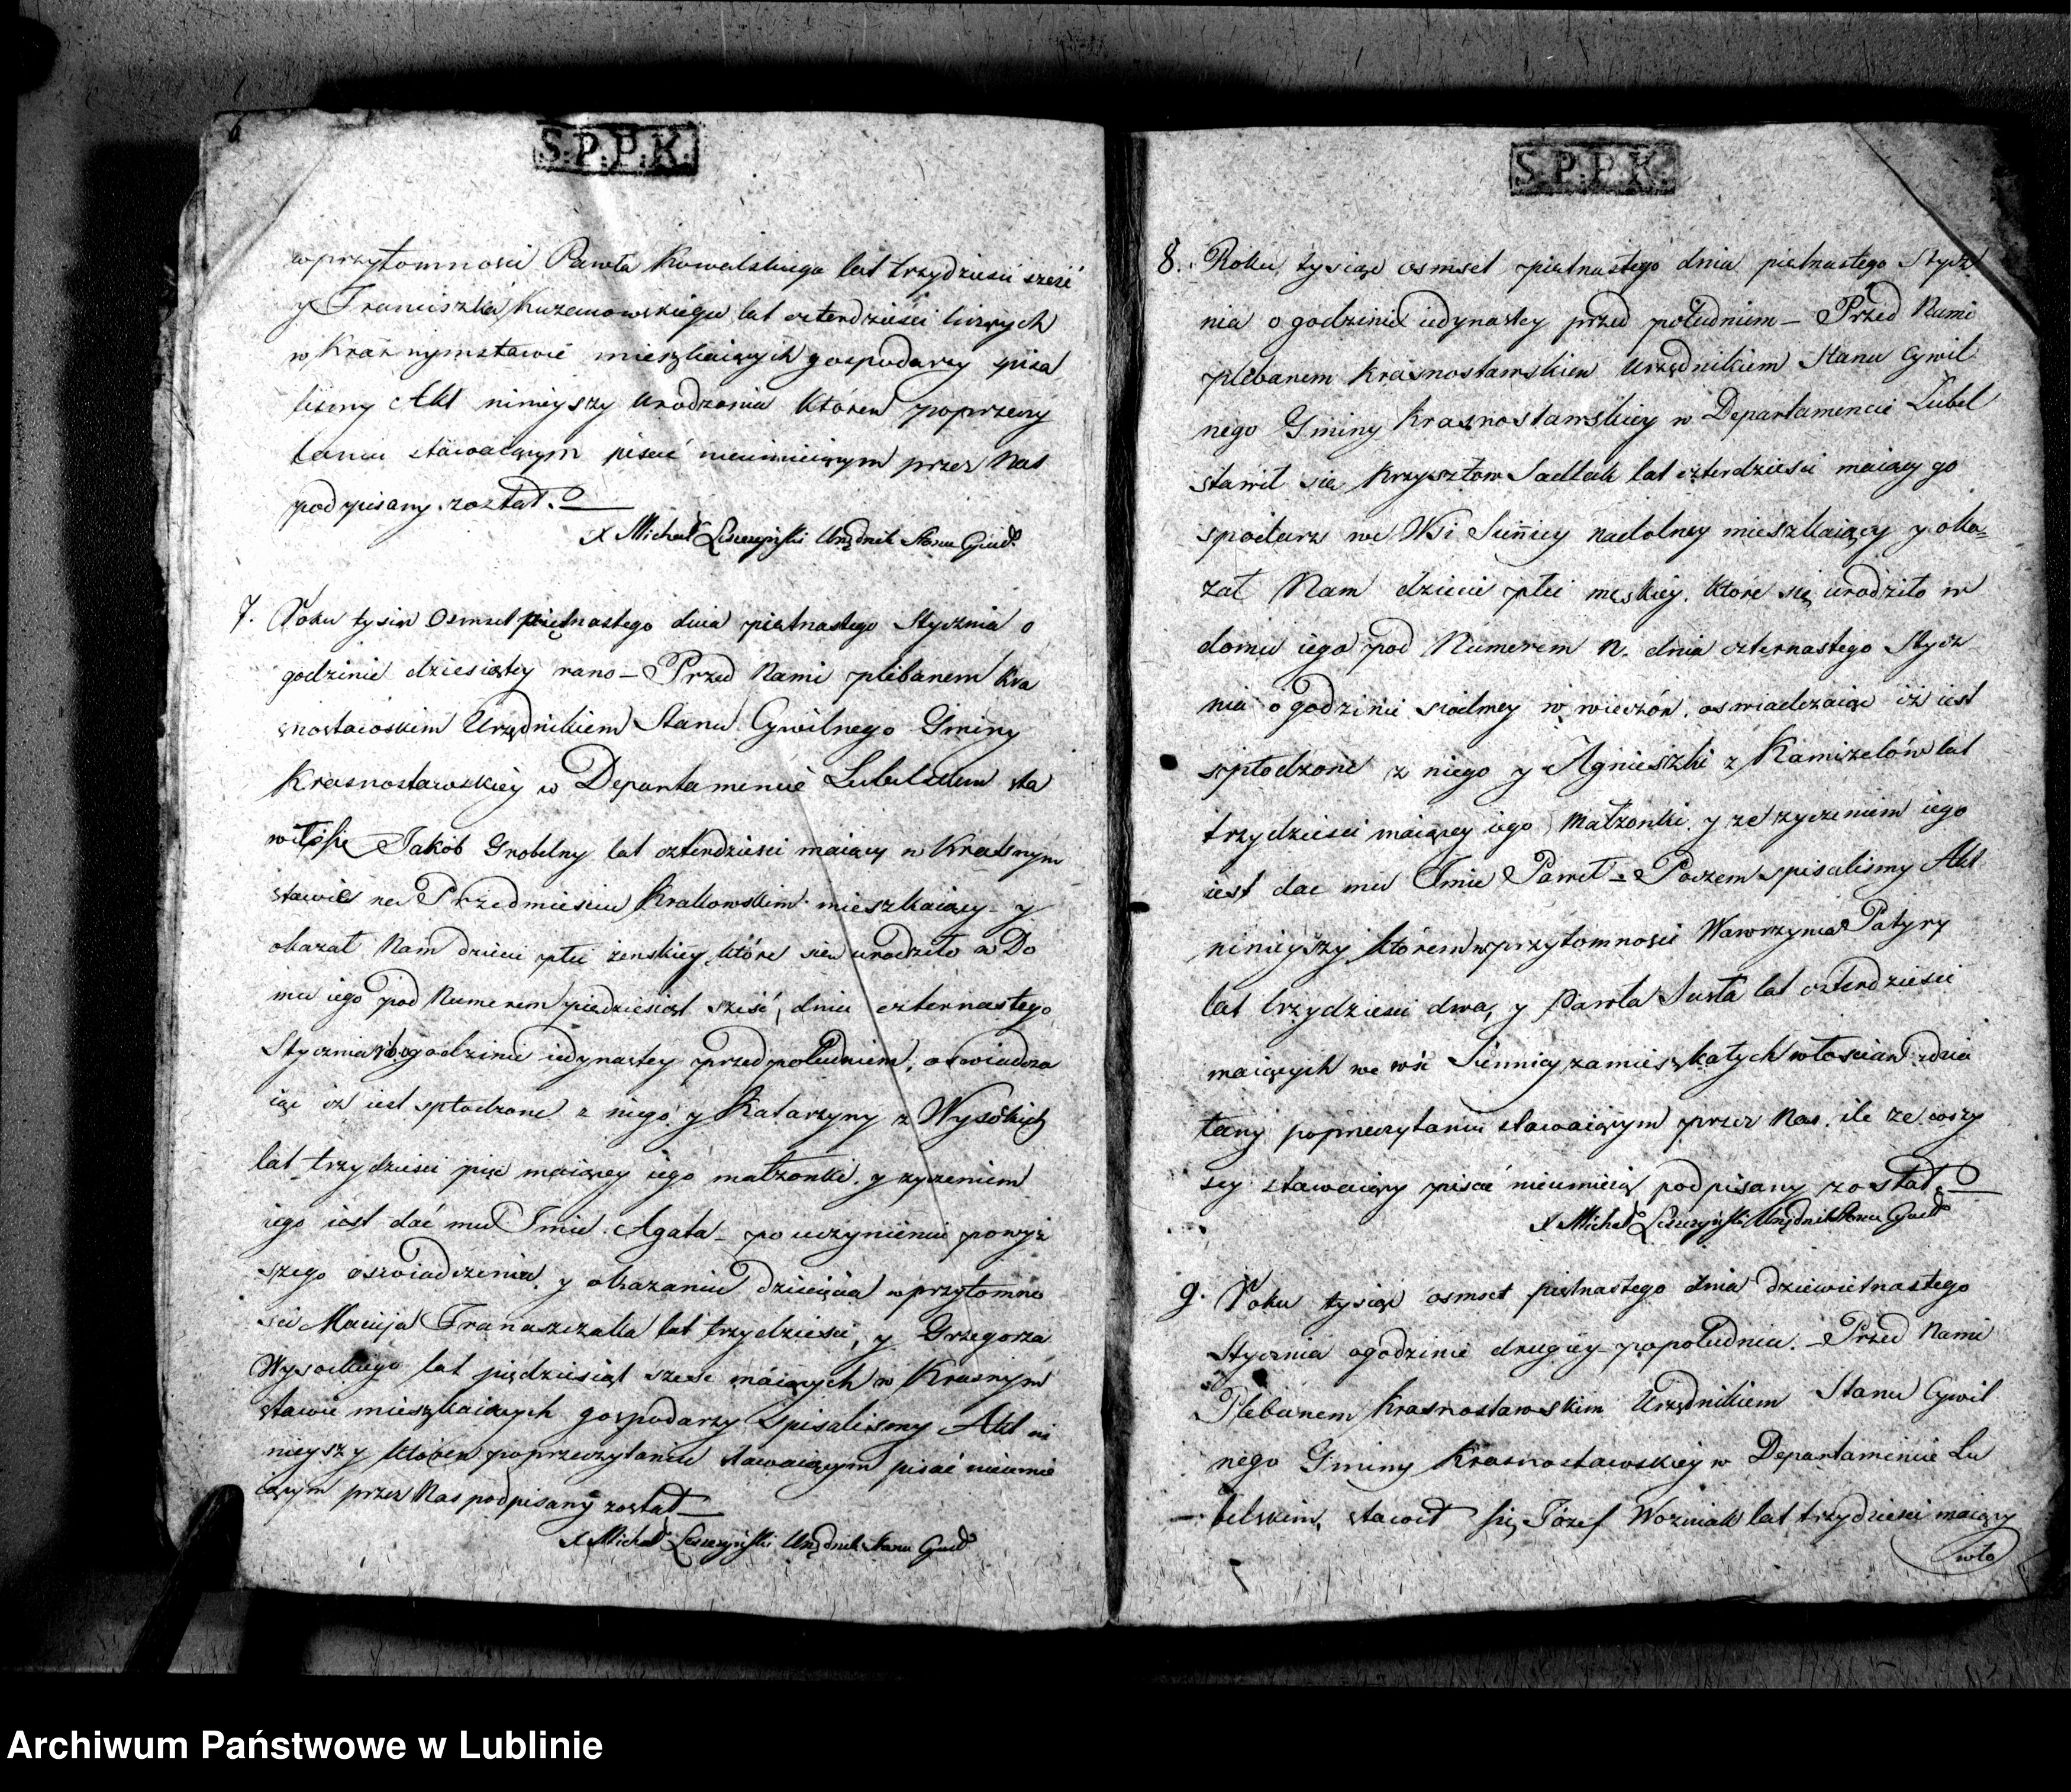 6
S.P.P.K.
w przytomności Pawła Kowalskiego lat trzydzieści sześć
y Franciszka Kuzanowskiego lat czterdzieści liczących
w Krasnymstawie mieszkaiących gospodarzy spisa
liśmy Akt ninieyszy Urodzenia któren poprzeczy
taniu stawaiącym pisać nieumieiącym przez Nas
podpisany został.
X Michał Leszczyński Urzędnik Stanu Cywil.
7. Roku tysiąc Osmset piętnastego dnia piętnastego Stycznia o
godzinie dziesiątey rano – Przed Nami plebanem Kra
snostawskim Urzędnikiem Stanu Cywilnego Gminy
Krasnostawskiey w Departamencie Lubelskim sta
wił się Jakob Grobelny lat czterdzieści maiący w Krasnym
stawie na Przedmieściu Krakowskim mieszkaiący y
okazał Nam dziecie płci żenskiey, które sie urodziło w Do
mu iego pod Numerem piędziesiąt sześć, dnia czternastego
Stycznia godzinie iedynastey przed południem, oswiadcza
iąc iż iest spłodzone z niego y Katarzyny z Wysokich
lat trzydzieści pięć maiącey iego małżonki, y życzeniem
iego iest dać mu Imie Agata – po uczynieniu powyż
szego oswiadczenia y okazaniu dziecięcia w przytomno
ści Macieja Franaszczaka lat trzydzieści, y Grzegorza
Wysockiego lat piędziesiąt sześć maiących w Krasnym
stawie mieszkaiących gospodarzy spisaliśmy Akt ni
nieyszy któren poprzeczytaniu stawaiącym pisać nieumie
iącym przez Nas podpisany został
X Michał Leszczyński Urzędnik Stanu Cywil
S.P.P.K.
8. Roku tysiąc osmset piętnastego dnia piętnastego Stycz
nia o godzinie iedynastey przed południem – Przed Nami
plebanem Krasnostawskiem Urzędnikiem Stanu Cywil
nego Gminy Krasnostawskiey w Departamencie Lubel
stawił sie Krzysztow Sadlak lat czterdzieści maiący go
spodarz we Wsi Siennicy nadolney mieszkaiący y oka=
zał Nam dziecie płci męskiey. które się urodziło w
domu iego pod Numerem N. dnia czternastego Stycz
nia o godzinie siodmey w wieczór. oswiadczaiąc iż iest
spłodzone z niego y Agnieszki z Kamizelów lat
trzydzieści maiącey iego Małżonki y ze życzeniem iego
iest dac mu Imie Paweł – Poczem spisalismy Akt
ninieyszy którem w przytomności Wawrzyńca Patyry
lat trzydzieści dwa, y Pawła Susła lat czterdzieści
maiących we wsi Siennicy zamieszkałych włoscian
tany poprzeczytaniu stawaiącym przez Nas. ile ze wszy
scy stawaiący pisać nieumieią podpisany został.
X Michał Leszczyński Urzędnik Stanu Cywil
9. Roku tysiąc osmset piętnastego dnia dziewietnastego
Stycznia ogodzinie drugiey popołudniu. – Przed Nami
Plebanem Krasnostawskim Urzędnikiem Stanu Cywil
nego Gminy Krasnostawskiey w Departamencie Lu
belskim, stawił się Józef Wozniak lat trzydziesci maiący
wło
Archiwum Państwowe w Lublinie